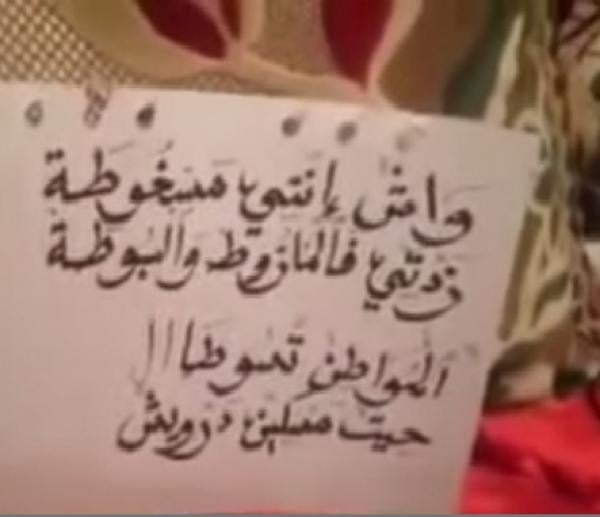 واش إنتي مسخوطة
زدتي فالمازوط والبوطة
المواطن تسوطا !!!
حيت مسكين درويش